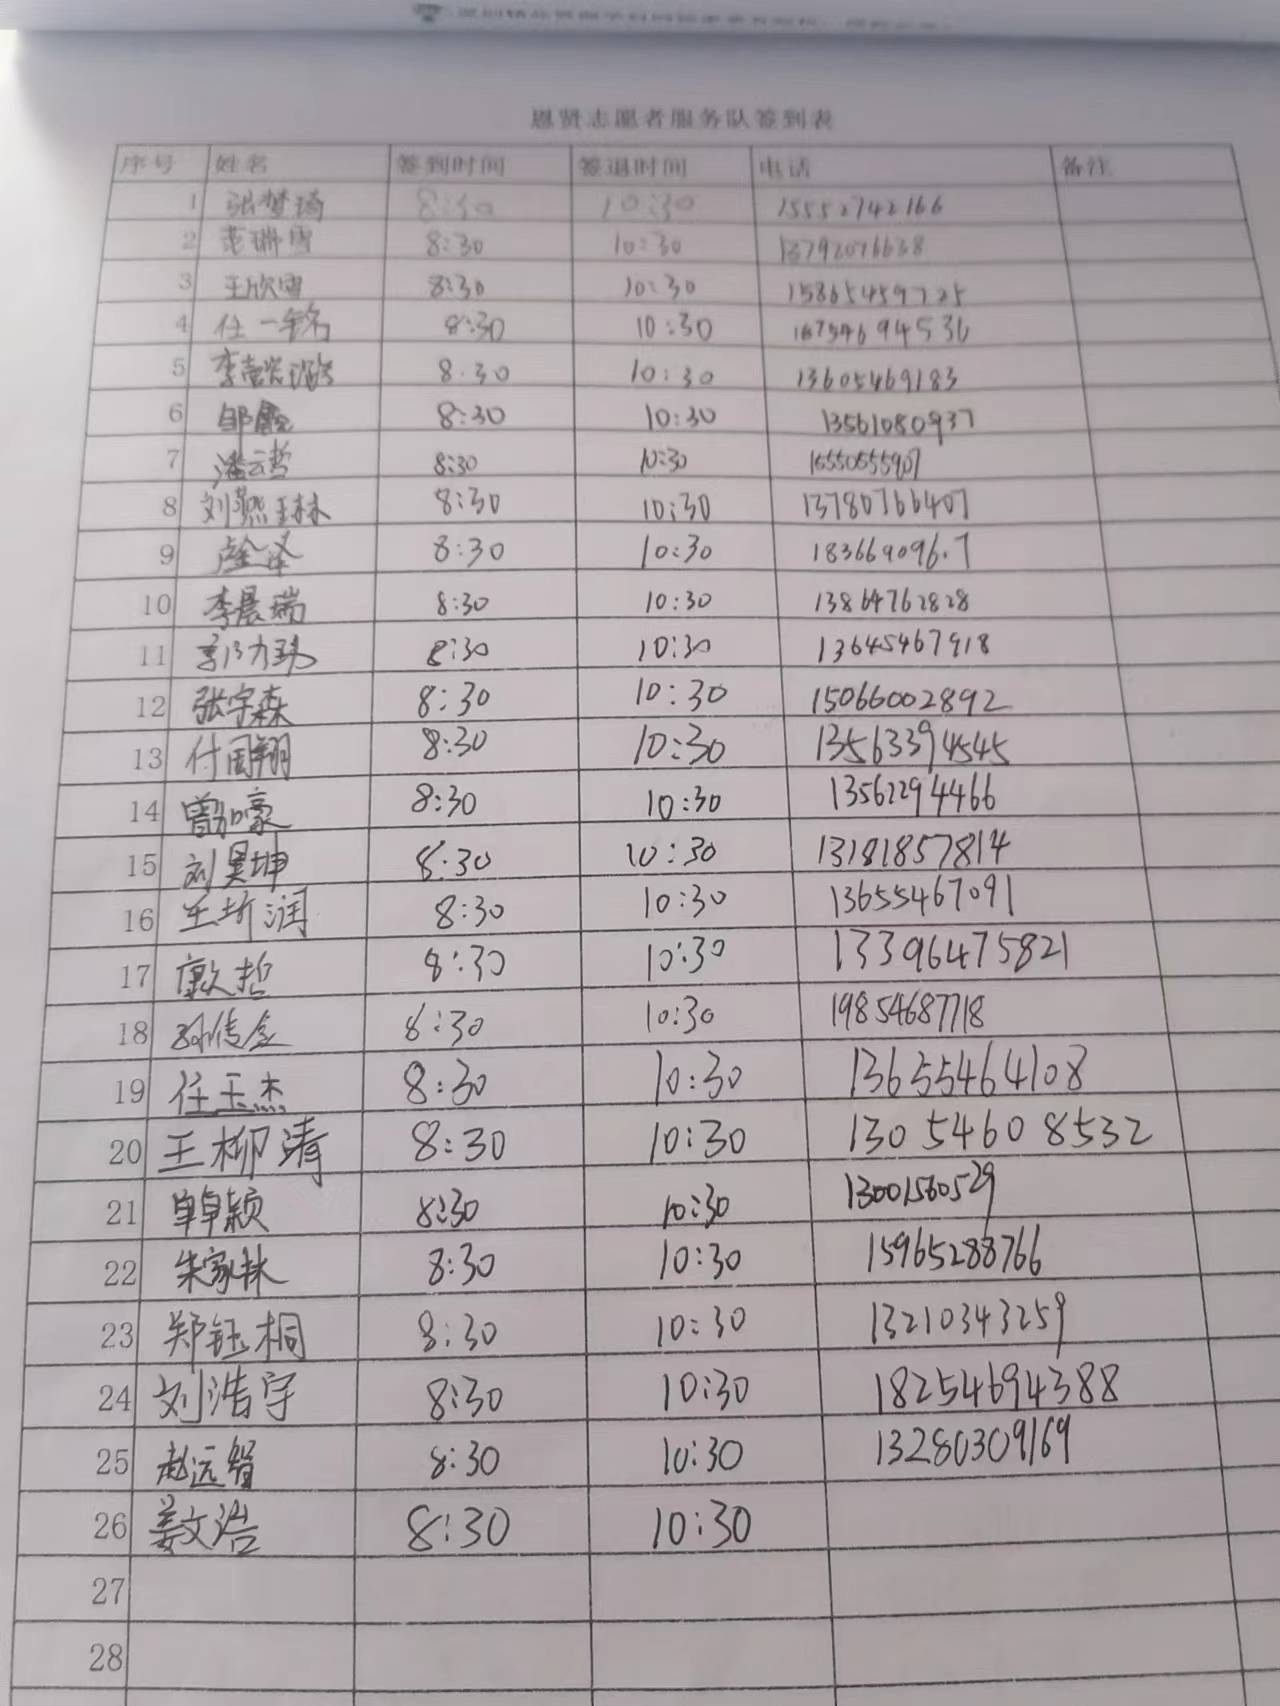 恩贤志愿者服务队签到表
序号 姓名 签到时间 签退时间 电话 备注
1 张梦琦 8:30 10:30 15552742166
2 范瑞雪 8:30 10:30 13792076638
3 王欣雪 8:30 10:30 15865459725
4 任一铭 8:30 10:30 18754694536
5 李 8.30 10:30 13605469183
6 邹霞 8:30 10:30 13561080937
7 潘云哲 8:30 10:30
8 刘燕琳 8:30 10:30 13780766407
9 8:30 10:30
10 李晨瑞 8:30 10:30 13864762828
11 8:30 10:30 13645467918
12 张宇森 8:30 10:30 15066002892
13 付国翔 8:30 10:30 13563394545
14 曾加豪 8:30 10:30 13562294466
15 刘昊坤 8:30 10:30 13181857814
16 王圻润 8:30 10:30 13655467091
17 8:30 10:30 13396475821
18 孙传金 8:30 10:30 19854687718
19 任玉杰 8:30 10:30 13655464108
20 王柳清 8:30 10:30 13054608532
21 单卓颖 8:30 10:30 13001560529
22 朱家林 8:30 10:30 15965288766
23 郑钰桐 8:30 10:30 13210343259
24 刘浩宇 8:30 10:30 18254694388
25 赵远智 8:30 10:30 13280309169
26 姜文浩 8:30 10:30
27
28